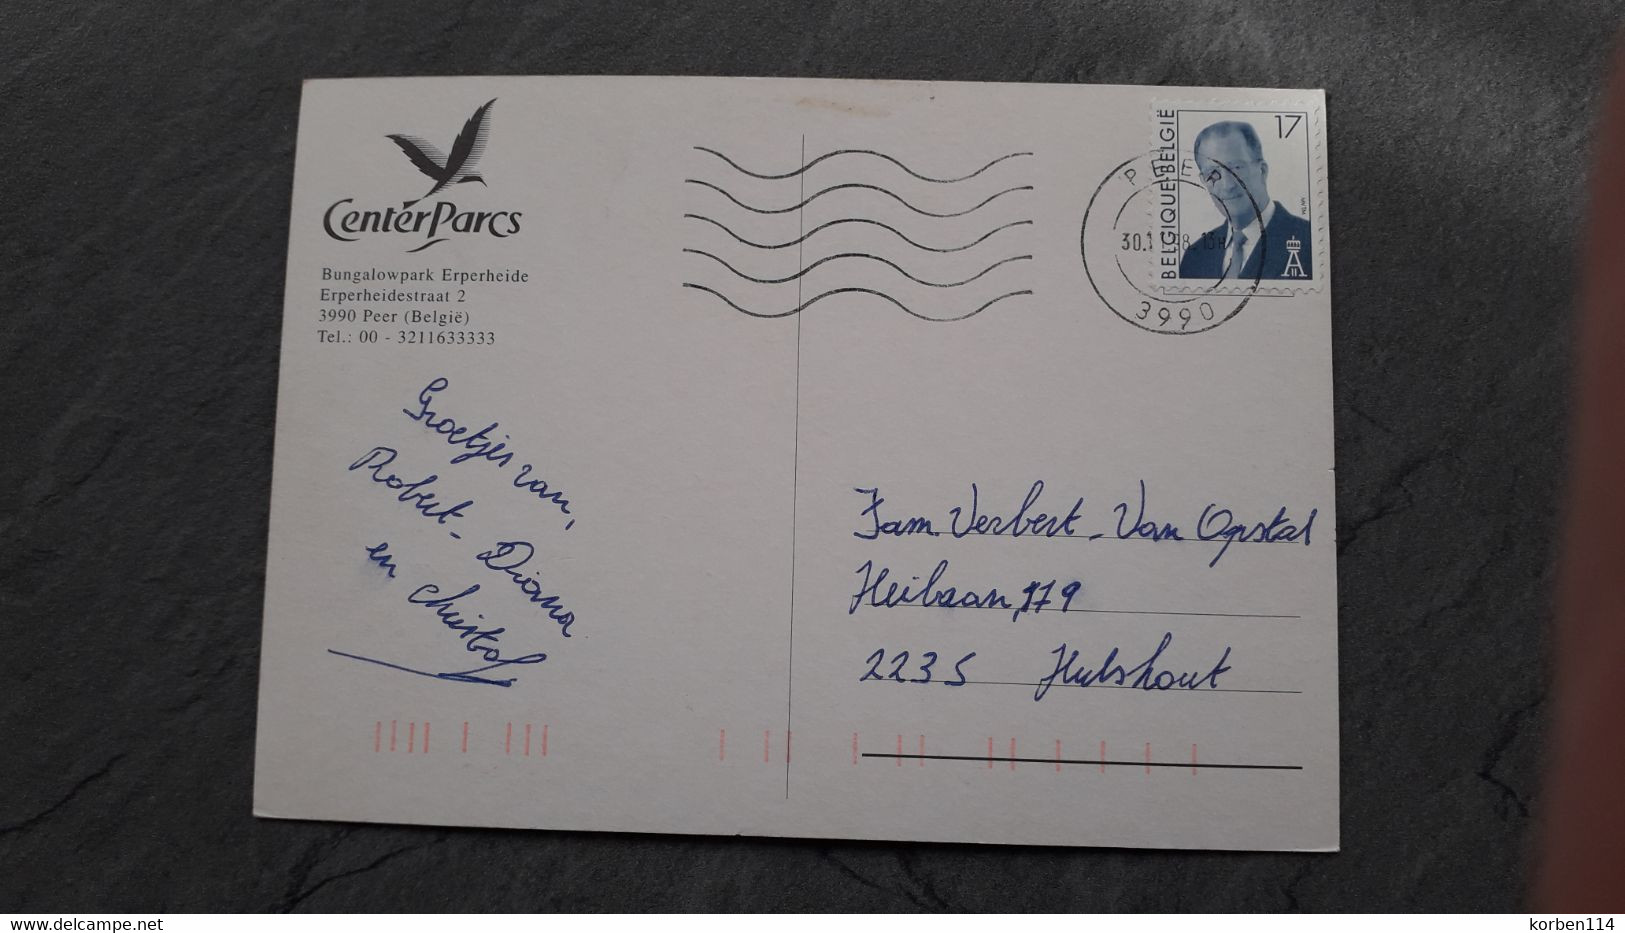 CenterParcs
Bungalowpark Erperheide
Erperheidestraat 2
3990 Peer (België)
Tel.: 00 - 3211633333
Groetjes van,
Robert - Diana
en christof
BELGIQUE-BELGIË
17
PEER
30.11.98.13H
3990
Fam. Verbert - Van Opstal
Heibaan, 179
2235 Hulshout
www.delcampe.net
korben114